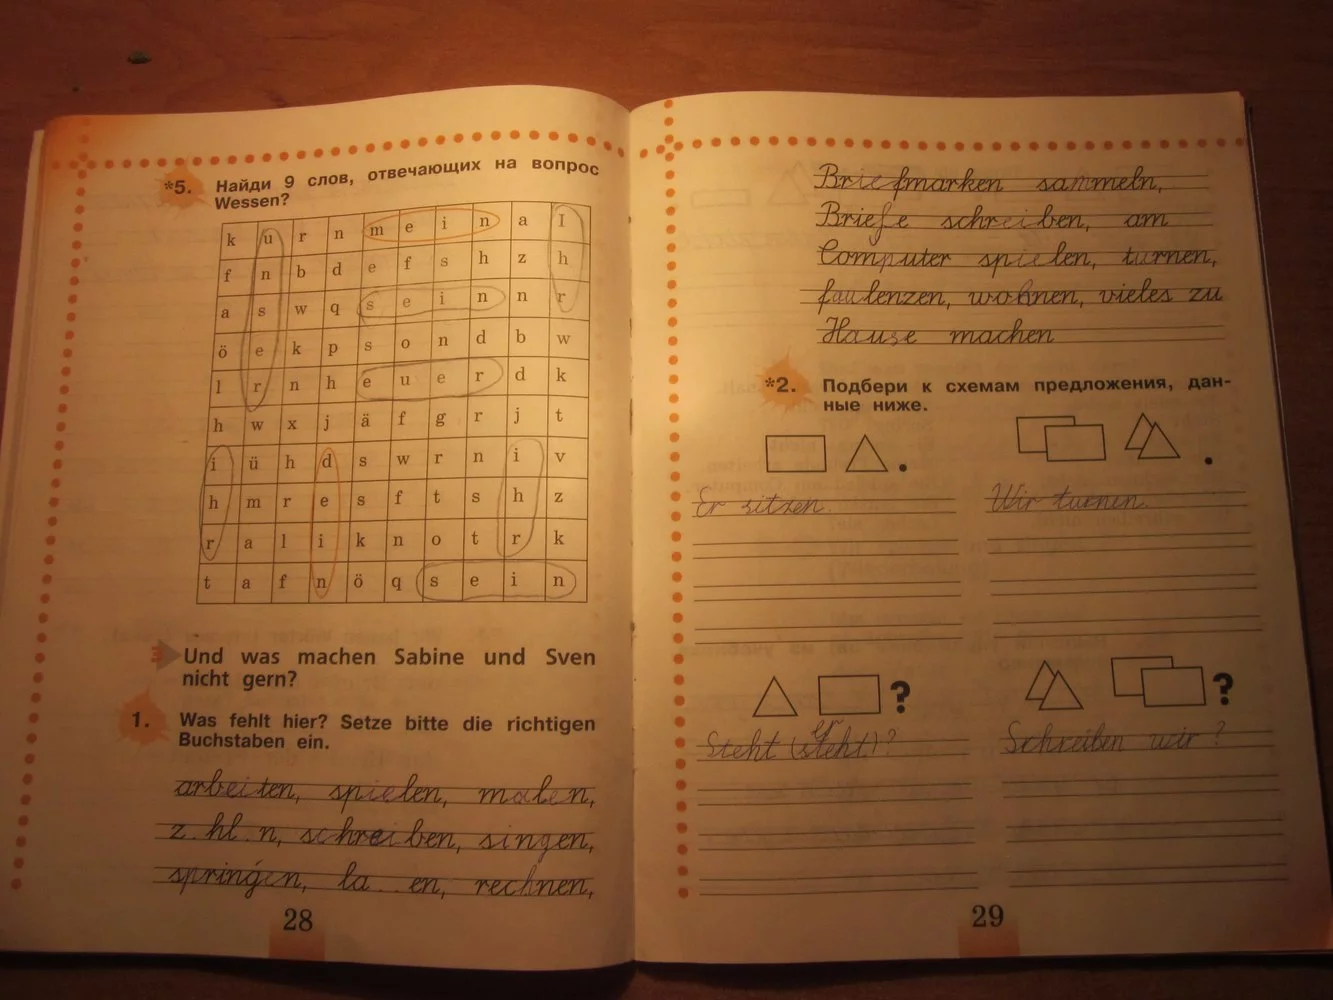 *5. Найди 9 слов, отвечающих на вопрос
Wessen?
k u r n m e i n a I
f n b d e f s h z h
a s w q s e i n n r
ö e k p s o n d b w
l r n h e u e r d k
h w x j ä f g r j t
i ü h d s w r n i v
h m r e s f t s h z
r a l i k n o t r k
t a f n ö q s e i n
Und was machen Sabine und Sven
nicht gern?
1. Was fehlt hier? Setze bitte die richtigen
Buchstaben ein.
arbeiten, spielen, malen,
z.hl.n, schreiben, singen,
springen, la..en, rechnen,
28
Briefmarken sammeln,
Briefe schreiben, am
Computer spielen, turnen,
faulenzen, wohnen, vieles zu
Hause machen
*2. Подбери к схемам предложения, дан-
ные ниже.
.
.
Er sitzen.
Wir turnen.
?
?
Steht (steht) er?
Schreiben wir?
29